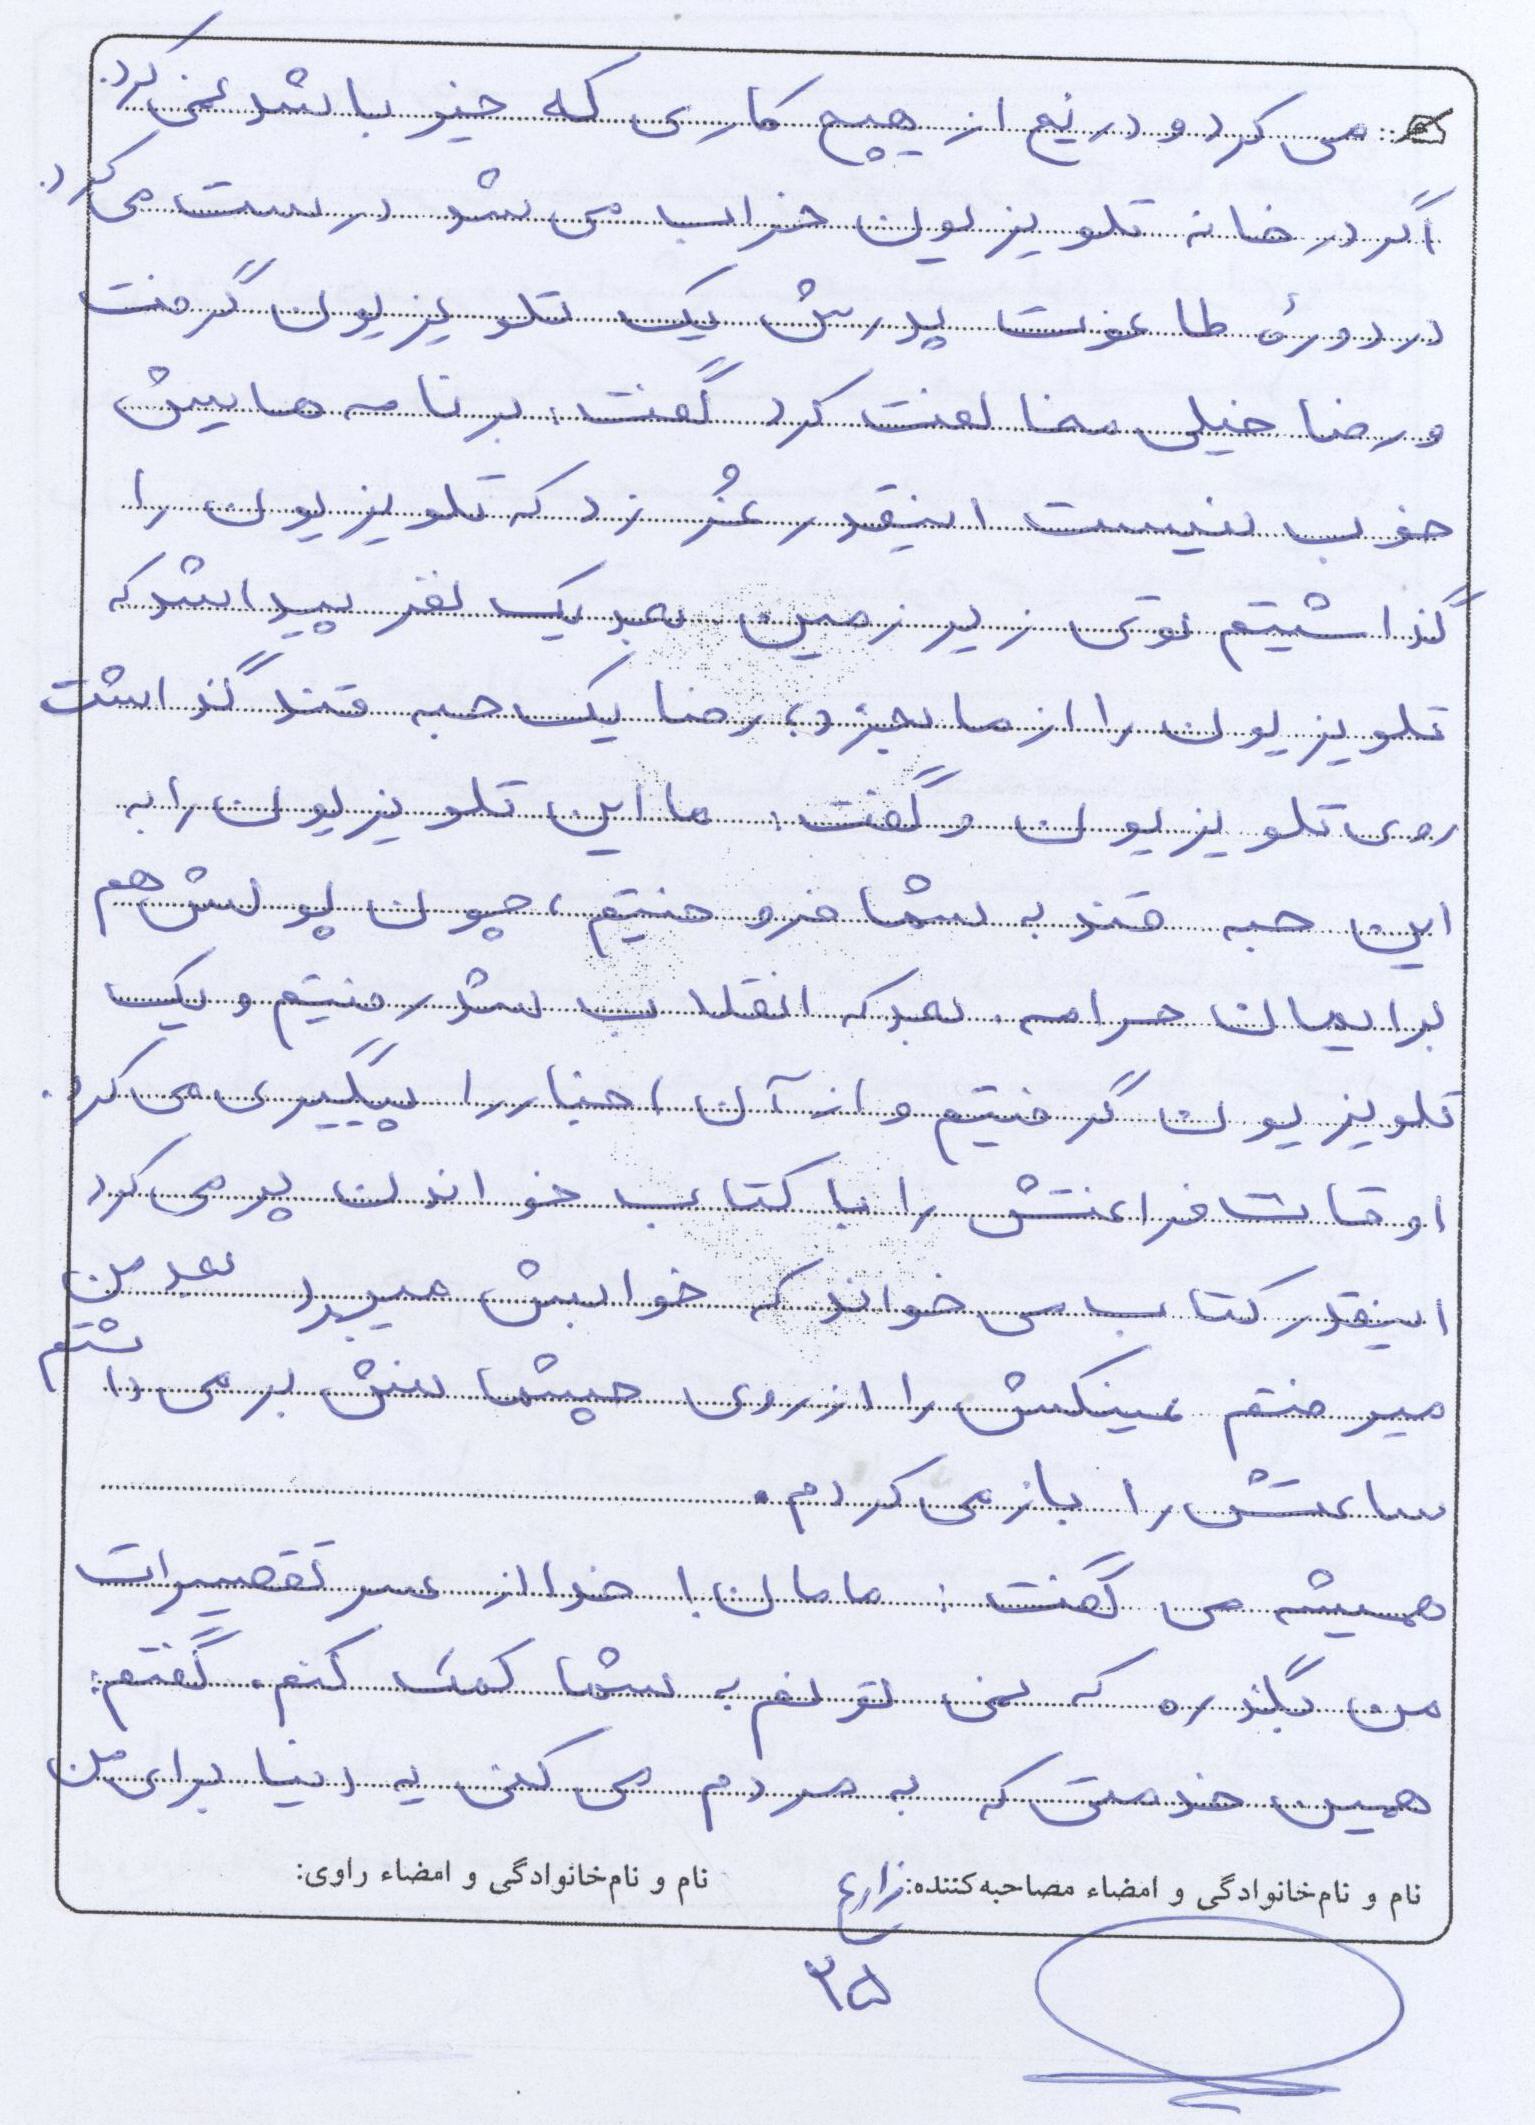 می کرد و دریغ از هیچ کاری که خیر باشد نمی کرد.
اگر در خانه تلویزیون خراب می شد درست می کرد.
در دورهٔ طاغوت پدرش یک تلویزیون گرفت
و رضا خیلی مخالفت کرد گفت: برنامه هایش
خوب نیست اینقدر غُر زد که تلویزیون را
گذاشتیم توی زیر زمین. بعد یک نفر پیدا شد که
تلویزیون را از ما بخرد، رضا یک حبه قند گذاشت
روی تلویزیون و گفت: ما این تلویزیون را به
این حبه قند به شما فروختیم، چون پولش هم
برایمان حرامه. بعد که انقلاب شد رفتیم و یک
تلویزیون گرفتیم و از آن اخبار را پیگیری می کرد.
اوقات فراغتش را با کتاب خواندن پر می کرد
اینقدر کتاب می خواند که خوابش میبرد بعد من
میرفتم عینکش را از روی چشمانش بر می داشتم
ساعتش را باز می کردم.
همیشه می گفت: مامان! خدا از سر تقصیرات
من بگذره که نمی تونم به شما کمک کنم. گفتم:
همین خدمتی که به مردم می کنی یه دنیا برای من
نام و نام‌خانوادگی و امضاء مصاحبه‌کننده: زارع
نام و نام‌خانوادگی و امضاء راوی:
۳۵